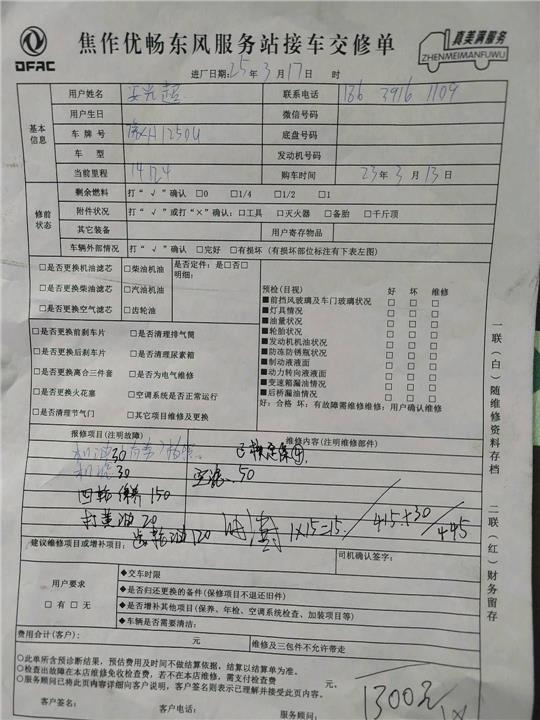 DFAC
焦作优畅东风服务站接车交修单
真美满服务
ZHENMEIMANFUWU
进厂日期: 25年 3月 17日 时
基本信息
用户姓名 联系电话 186 3916 1109
用户生日 微信号码
车 牌 号 豫H1250U 底盘号码
车 型 发动机号码
当前里程 购车时间 23年 3月 13日
修前状态
剩余燃料 打“√”确认 □0 □1/4 □1/2 □1
附件状况 打“√”或打“×”确认: □工具 □灭火器 □备胎 □千斤顶
其它装备 用户寄存物品
车辆外部情况 打“√”确认 □完好 □有损坏 (有损坏部位标注有下表左图)
□是否更换机油滤芯 □柴油机油
□是否更换柴油滤芯 □汽油机油
□是否更换空气滤芯 □齿轮油
是否定件: 是□否□
明细:
□是否更换前刹车片 □是否清理排气筒
□是否更换后刹车片 □是否清理尿素箱
□是否更换离合三件套 □是否为电气维修
□是否更换火花塞 □空调系统是否正常运行
□是否清理节气门 □其它项目维修及更换
预检(目视) 好 坏 维修
■前挡风玻璃及车门玻璃状况 □ □ □
■灯具情况 □ □ □
■油量状况 □ □ □
■轮胎状况 □ □ □
■发动机机油状况 □ □ □
■防冻防锈瓶状况 □ □ □
■制动液液面 □ □ □
■动力转向液液面 □ □ □
■变速箱漏油情况 □ □ □
■后桥漏油情况 □ □ □
好: 合格 坏: 有故障需维修维修: 用户确认维修
一联(白)随维修资料存档
二联(红)财务留存
报修项目(注明故障) 维修内容(注明维修部件)
机油30
机滤30 空滤 50
四轮保养150
打黄油20
齿轮油120
1×15=15 415+30 445
建议维修项目或增补项目: 司机确认签字:
用户要求
□有 □无
◆交车时限
◆是否归还更换的备件(保修项目不退还旧件)
◆是否增补其他项目(保养、年检、空调系统检查、加装项目等)
◆车辆是否需要清洁:
费用合计(客户): 元 维修及三包件不允许带走
○此单所含预诊断结果, 预估费用及时间不做结算依据, 结算以结算单为准。
○检查出故障在本店维修免收检查费, 若不在本店维修, 需支付检查费 元。
○服务顾问已将此页内容详细向客户说明, 客户签名则表示已理解并接受此页内容。
1300元
客户签名: 客户电话: 服务顾问: